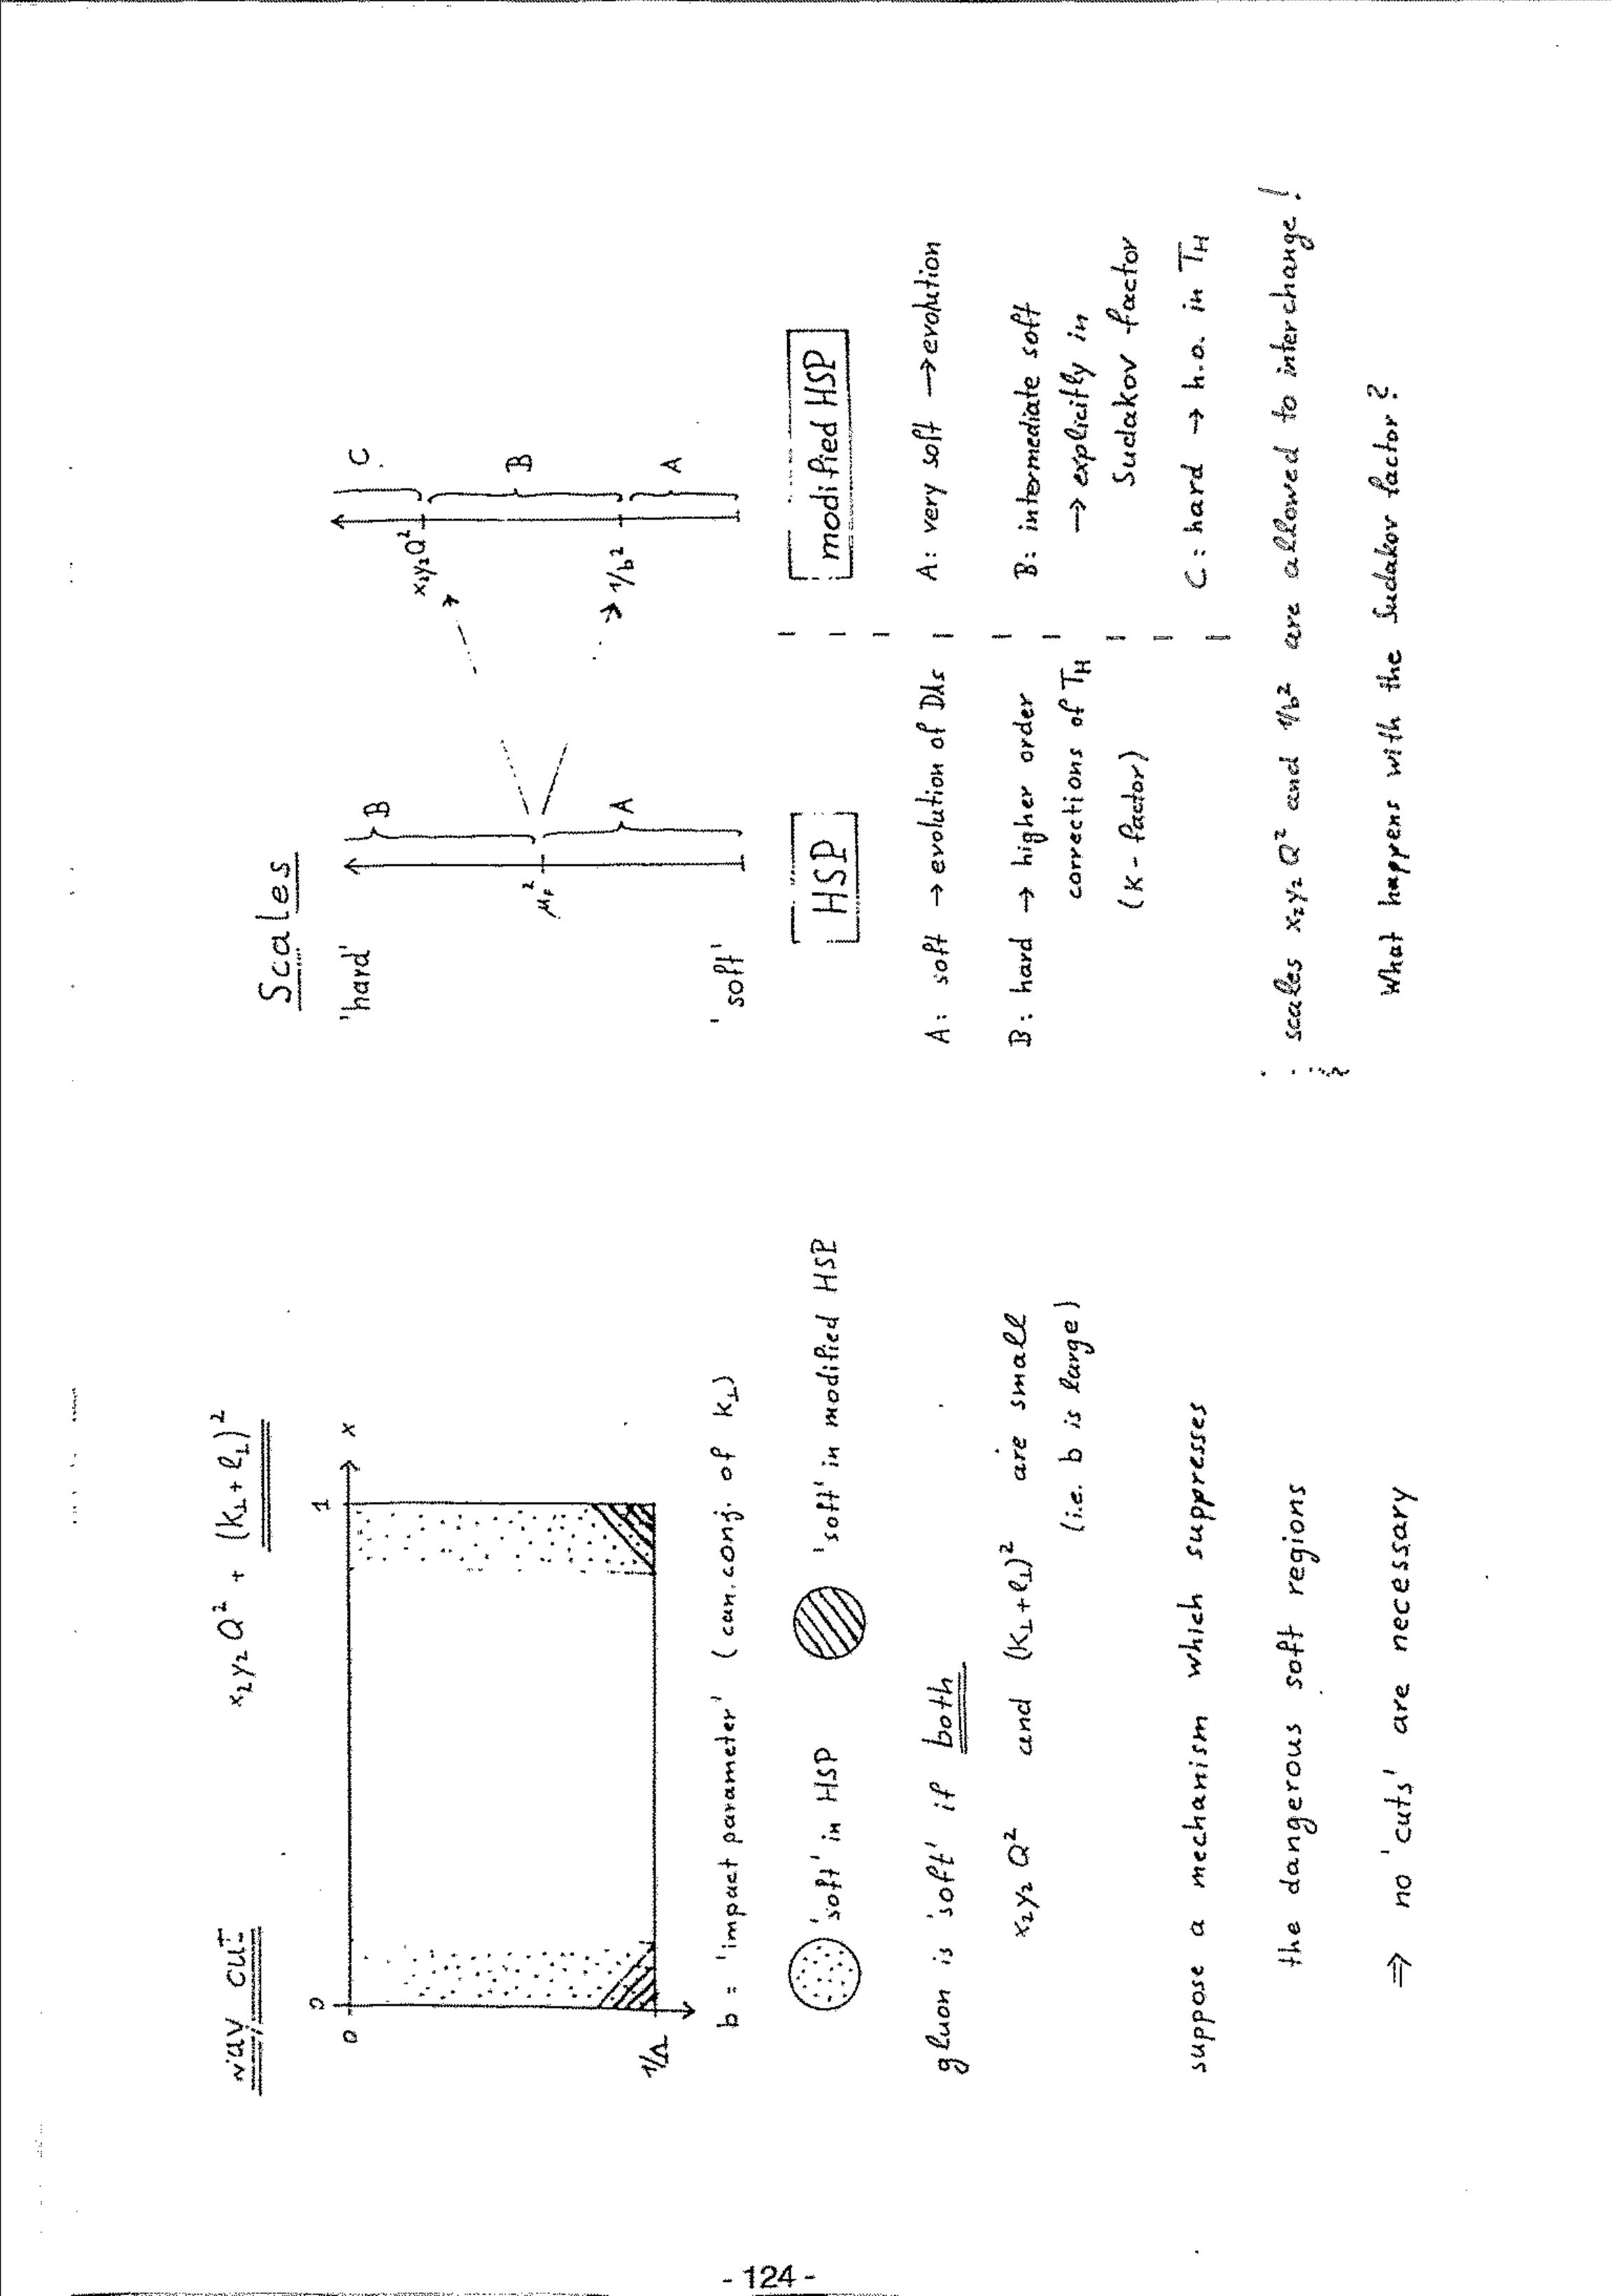 way out
x₂y₂Q² + (k⊥ + l⊥)²
0
1
x
0
1/Λ
b = 'impact parameter' (can. conj. of k⊥)
'soft' in HSP
'soft' in modified HSP
gluon is 'soft' if both
x₂y₂Q² and (k⊥ + l⊥)² are small
(i.e. b is large)
suppose a mechanism which suppresses
the dangerous soft regions
⇒ no 'cuts' are necessary
Scales
'hard'
'soft'
μF²
B
A
x₂y₂Q²
1/b²
C
B
A
HSP
modified HSP
A: soft → evolution of DAs
B: hard → higher order
corrections of TH
(K-factor)
A: very soft → evolution
B: intermediate soft
→ explicitly in
Sudakov factor
C: hard → h.o. in TH
scales x₂y₂Q² and 1/b² are allowed to interchange!
What happens with the Sudakov factor?
- 124 -